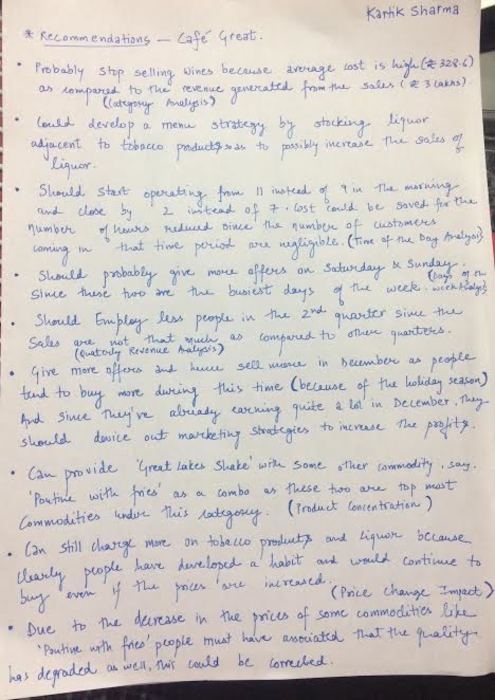 Kartik Sharma
* Recommendations — Café Great.
• Probably stop selling wines because average cost is high (₹ 328.6)
as compared to the revenue generated from the sales (₹ 3 Lakhs).
(Category Analysis)
• Could develop a menu strategy by stocking liquor
adjacent to tobacco products so as to possibly increase the sales of
liquor.
• Should start operating from 11 instead of 9 in the morning
and close by 2 instead of 7. Cost could be saved for the
number of hours reduced since the number of customers
coming in that time period are negligible. (Time of the Day Analysis)
• Should probably give more offers on Saturday & Sunday.
since these two are the busiest days of the week. (Days of the
week Analysis)
• Should Employ less people in the 2nd quarter since the
Sales are not that much as compared to other quarters.
(Quaterly Revenue Analysis)
• Give more offers and hence sell more in December as people
tend to buy more during this time (because of the holiday season)
And since they've already earning quite a lot in December, they
should device out marketing strategies to increase the profits.
• Can provide 'Great Lakes Shake' with some other commodity, say.
'Poutine with fries' as a combo as these two are top most
Commodities under this category. (Product Concentration)
• Can still charge more on tobacco products and liquor because
clearly people have developed a habit and would continue to
buy even if the prices are increased.
(Price Change Impact)
• Due to the decrease in the prices of some commodities like
'Poutine with fries' people must have associated that the quality
has degraded as well, this could be corrected.